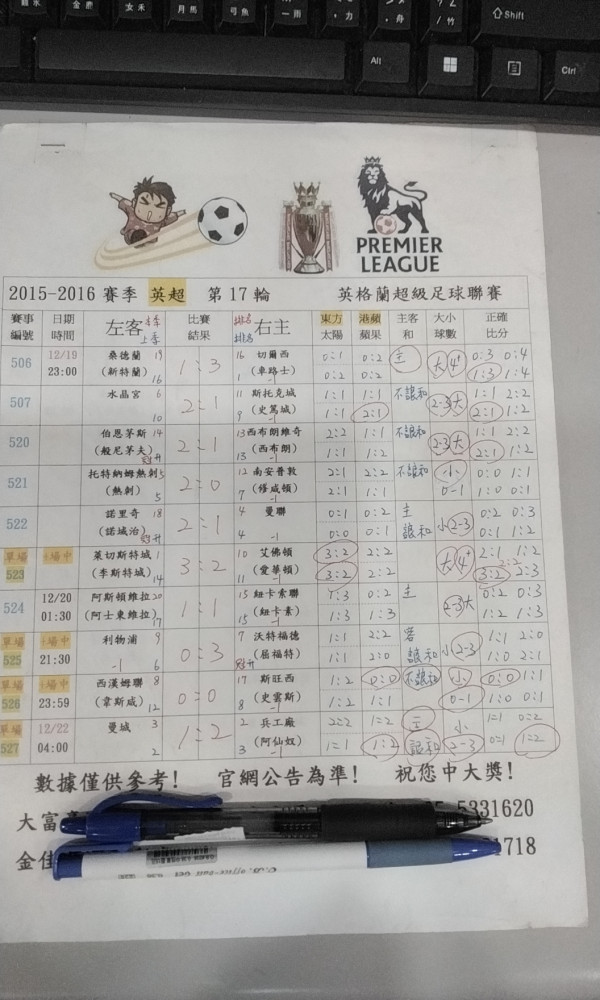 Shift
Alt
Ctrl
PREMIER
LEAGUE
2015-2016 賽季 英超 第17輪 英格蘭超級足球聯賽
賽事 日期 左客 本季 比賽 排名 右主 東方 港蘋 主客 大小 正確
編號 時間 上季 結果 排名 太陽 蘋果 和 球數 比分
506 12/19 桑德蘭 19 1:3 16 切爾西 0:1 0:2 主 大 4+ 0:3 0:4
23:00 (新特蘭) 16 1 (車路士) 0:2 0:2 1:3 1:4
-1
507 水晶宮 6 2:1 11 斯托克城 1:1 1:1 不讓和 2-3 大 1:1 2:2
10 9 (史篤城) 1:1 2:1 2:1 1:2
-1
520 伯恩茅斯 14 2:1 13 西布朗維奇 2:2 1:1 不讓和 2-3 大 1:1 2:2
(般尼茅夫) 冠升 13 (西布朗) 1:1 1:2 2:1 1:2
-1
521 托特納姆熱刺 5 2:0 12 南安普敦 2:1 2:2 不讓和 小 0:0 1:1
(熱刺) 5 7 (修咸頓) 2:1 1:1 0-1 1:0 0:1
-1
522 諾里奇 18 2:1 4 曼聯 0:1 0:2 主 小 2-3 0:2 0:3
(諾域治) 4 0:0 0:1 讓和 0:1 1:2
-1
單場 4場中 萊切斯特城 1 3:2 10 艾佛頓 3:2 2:2 大 4+ 2:1 1:2
523 (李斯特城) 14 11 (愛華頓) 3:2 2:2 3:2 2:2
-1
524 12/20 阿斯頓維拉 20 1:1 15 紐卡索聯 1:3 0:2 主 2-3 大 0:2 0:3
01:30 (阿士東維拉) 17 15 (紐卡素) 1:3 1:3 1:2 1:3
-1
單場 4場中 利物浦 9 0:3 7 沃特福德 1:1 2:2 客 小 2-3 1:1 2:0
525 21:30 -1 6 冠升 (屈福特) 1:1 2:0 讓和 1:0 2:1
單場 4場中 西漢姆聯 8 0:0 17 斯旺西 1:2 0:0 不讓和 小 0:0 1:1
526 23:59 (韋斯咸) 12 8 (史雲斯) 1:2 1:1 0-1 1:0 0:1
-1
單場 12/22 曼城 3 1:2 2 兵工廠 2:2 1:2 主 小 1:1 0:2
527 04:00 2 3 (阿仙奴) 1:1 1:2 讓和 2-3 0:1 1:2
-1
數據僅供參考! 官網公告為準! 祝您中大獎!
大富 5331620
金佳 1718